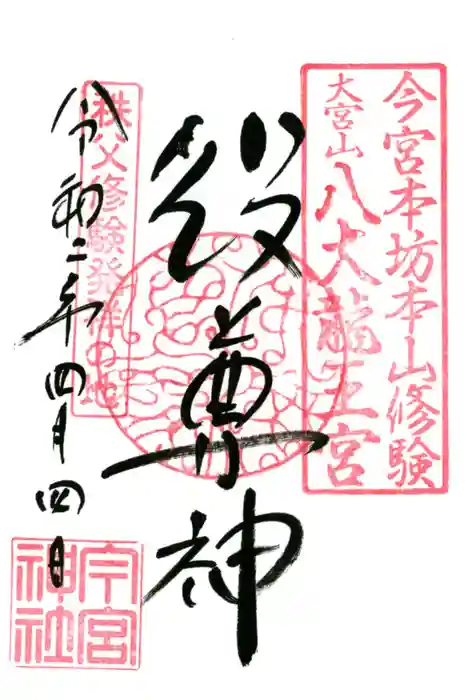 今宮本坊本山修験
大宮山八大龍王宮
役尊神
秩父修験発祥の地
令和二年四月四日
今宮
神社